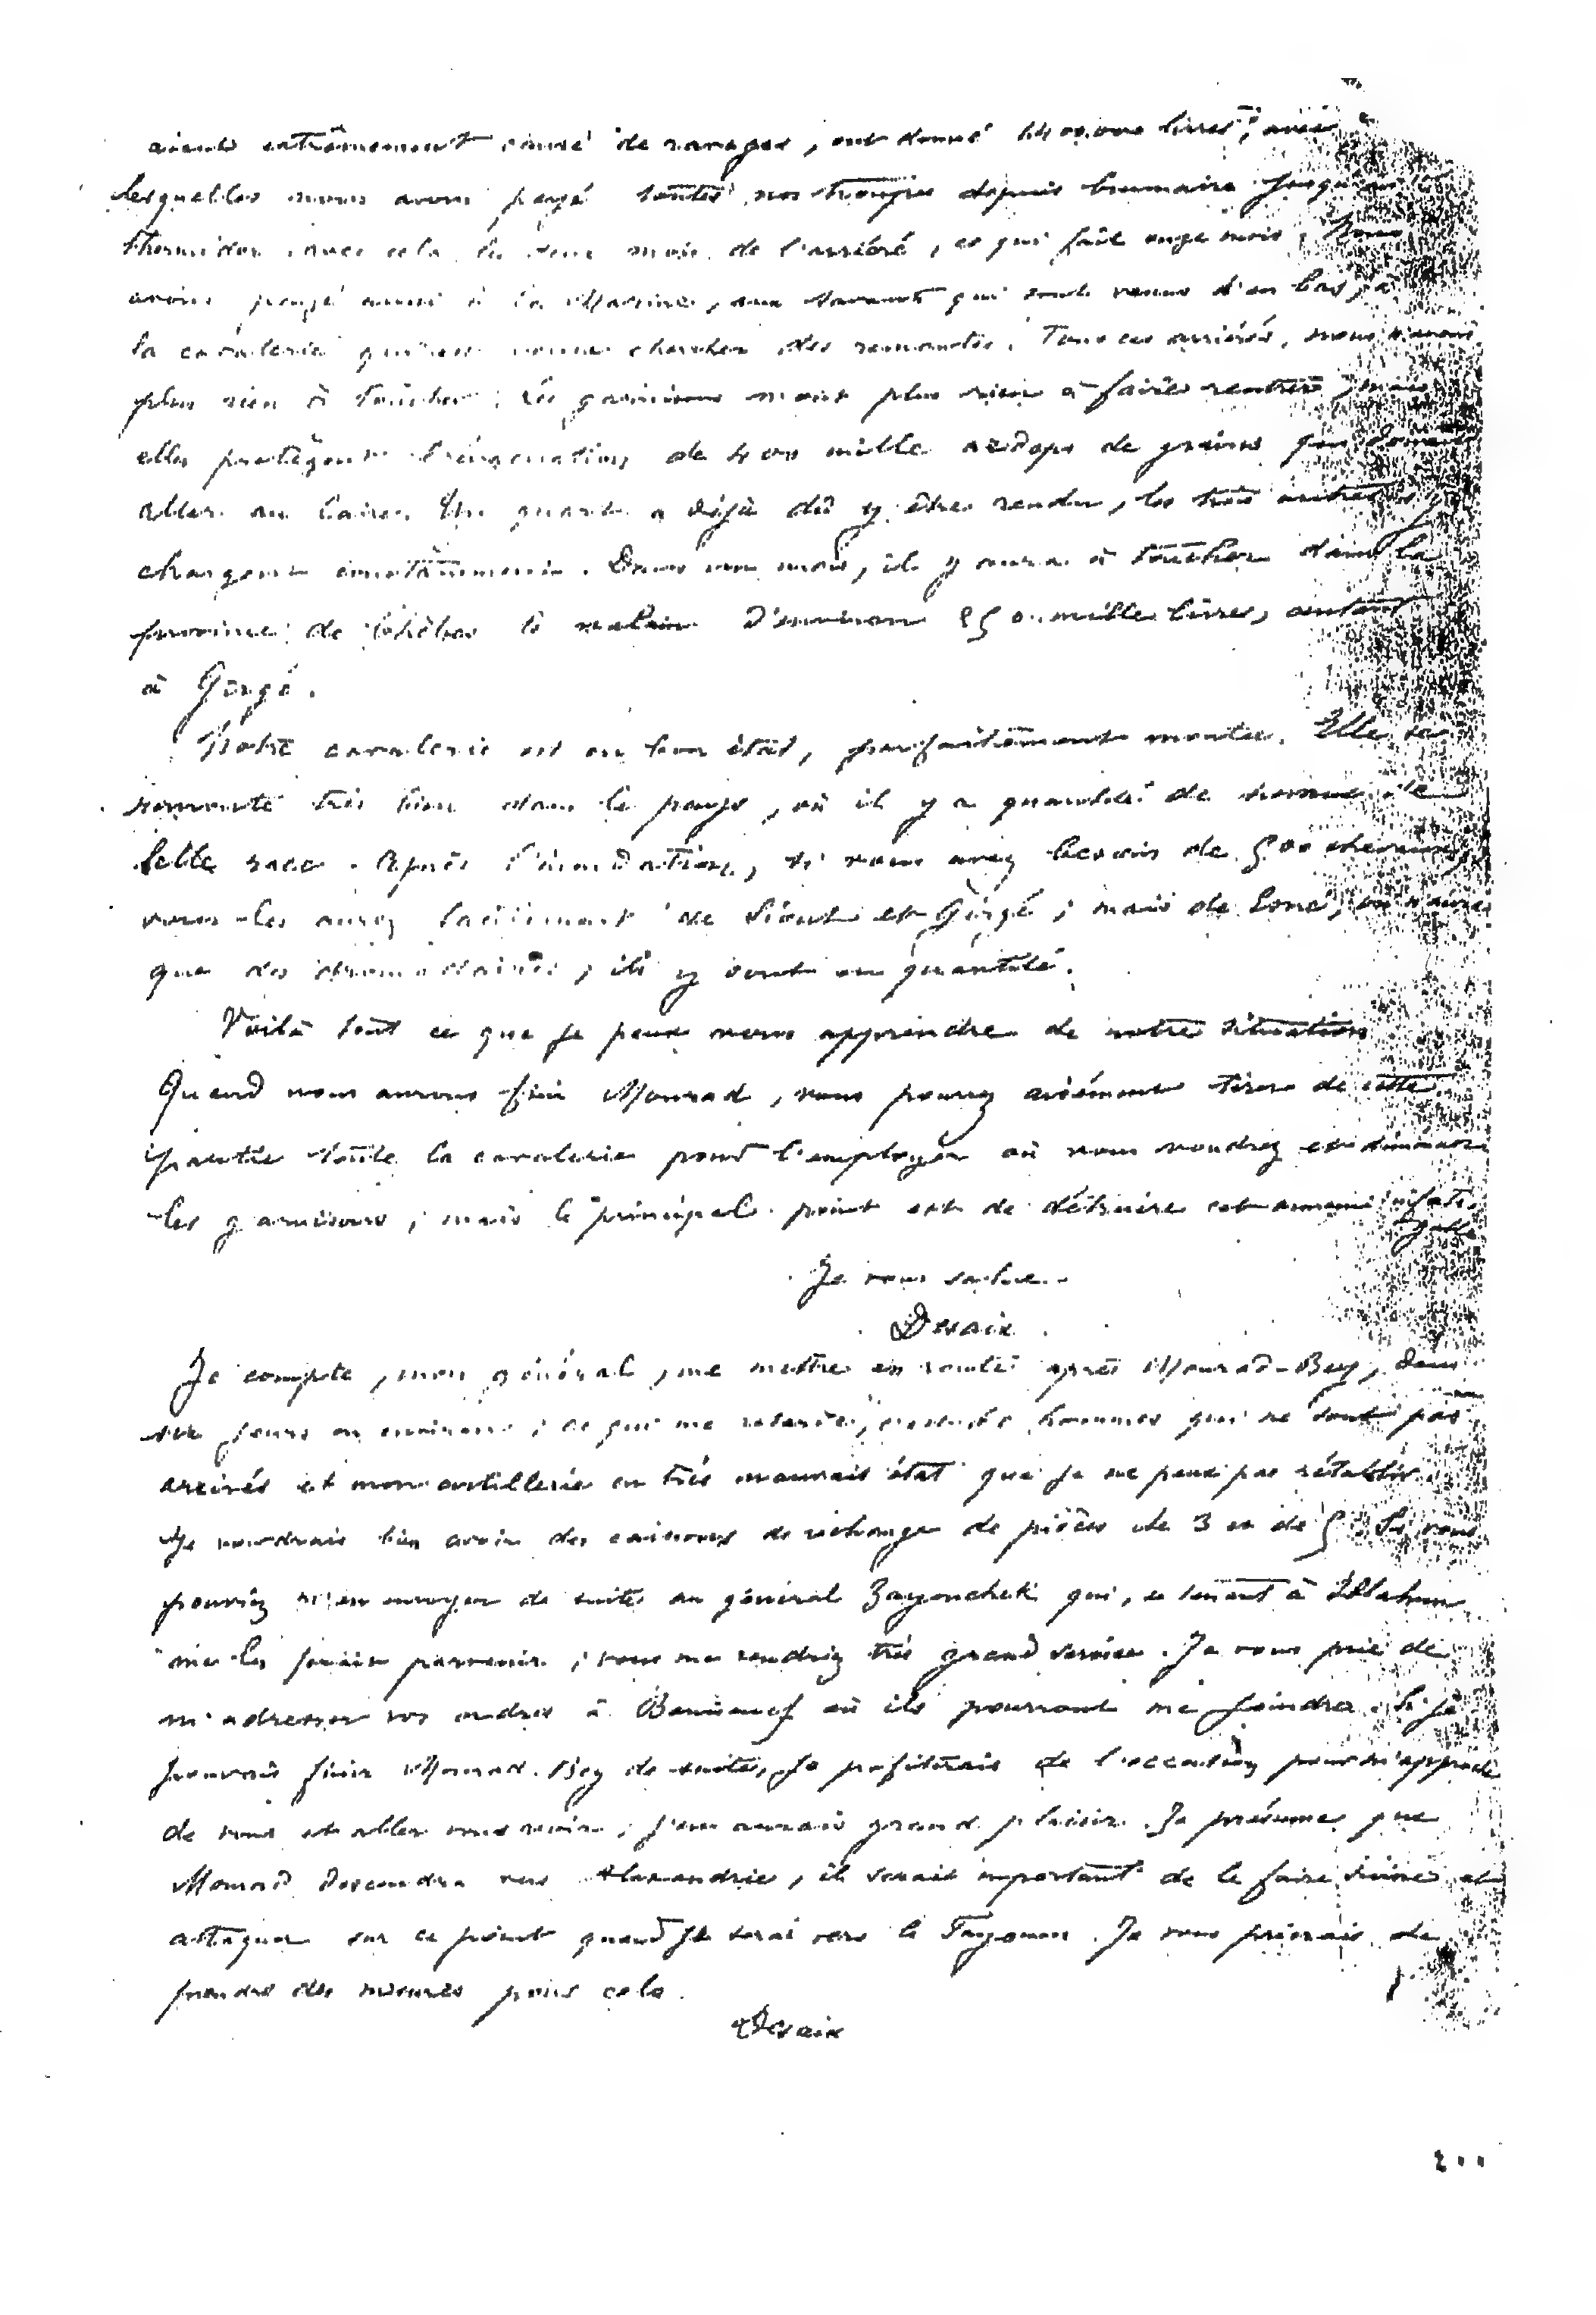 aient extrêmement causé de ravages, ont donné livres, avec
lesquelles nous avons payé toutes nos troupes depuis brumaire jusqu'au
thermidor avec cela deux mois de l'arriéré, ce qui fait onze mois. Nous
avons payé aussi à la Marine, aux savants qui sont venus d'en bas, à
la cavalerie qui est venue chercher des remontes. Tous ces arriérés, nous n'avons
plus rien à toucher. Les garnisons n'ont plus rien à faire rentrer, mais
elles protègent l'évacuation de 400 mille ardeps de grains qui doivent
aller au Caire. Un quart a déjà dû y être rendu, les trois autres s'y
chargent constamment. Dans un mois, il y aura à toucher dans la
province de Thèbes la valeur d'environ mille livres, autant
à Girgé.
Notre cavalerie est en bon état, parfaitement montée. Elle se
remonte très bien dans le pays, où il y a quantité de de
belle race. Après l'inondation, si vous avez besoin de 500 chevaux,
vous les aurez facilement de Siout et Girgé ; mais de on n'aura
que des dromadaires, ils y sont en quantité.
Voilà tout ce que je peux vous apprendre de notre situation
Quand nous aurons fini Mourad, vous pourrez aisément tirer de cette
partie toute la cavalerie pour l'employer où vous voudrez et diminuer
les garnisons ; mais le principal point est de détruire cet ennemi infati-
gable
Je vous salue.
Desaix
Je compte, mon général, me mettre en route après Mourad-Bey, dans
six jours ou environ ; ce qui me retarde, hommes qui ne sont pas
arrivés et mon artillerie en très mauvais état que je ne peux pas rétablir.
Je voudrais bien avoir des caissons de rechange de pièces de 3 et de 5. Si vous
pouviez m'en envoyer de suite au général Zayonchek qui, en tenant à Illahun
me les ferait parvenir, vous me rendriez très grand service. Je vous prie de
m'adresser vos ordres à Benisouef où ils pourront me joindre. Si je
pouvais finir Mourad-Bey de suite, je profiterais de l'occasion pour m'approcher
de vous et aller vous voir, j'en aurais grand plaisir. Je présume que
Mourad descendra vers Alexandrie, il serait important de le faire suivre et
attaquer sur ce point quand je serai vers le Fayoum. Je vous prierais de
prendre des mesures pour cela.
Desaix
٤٠٠